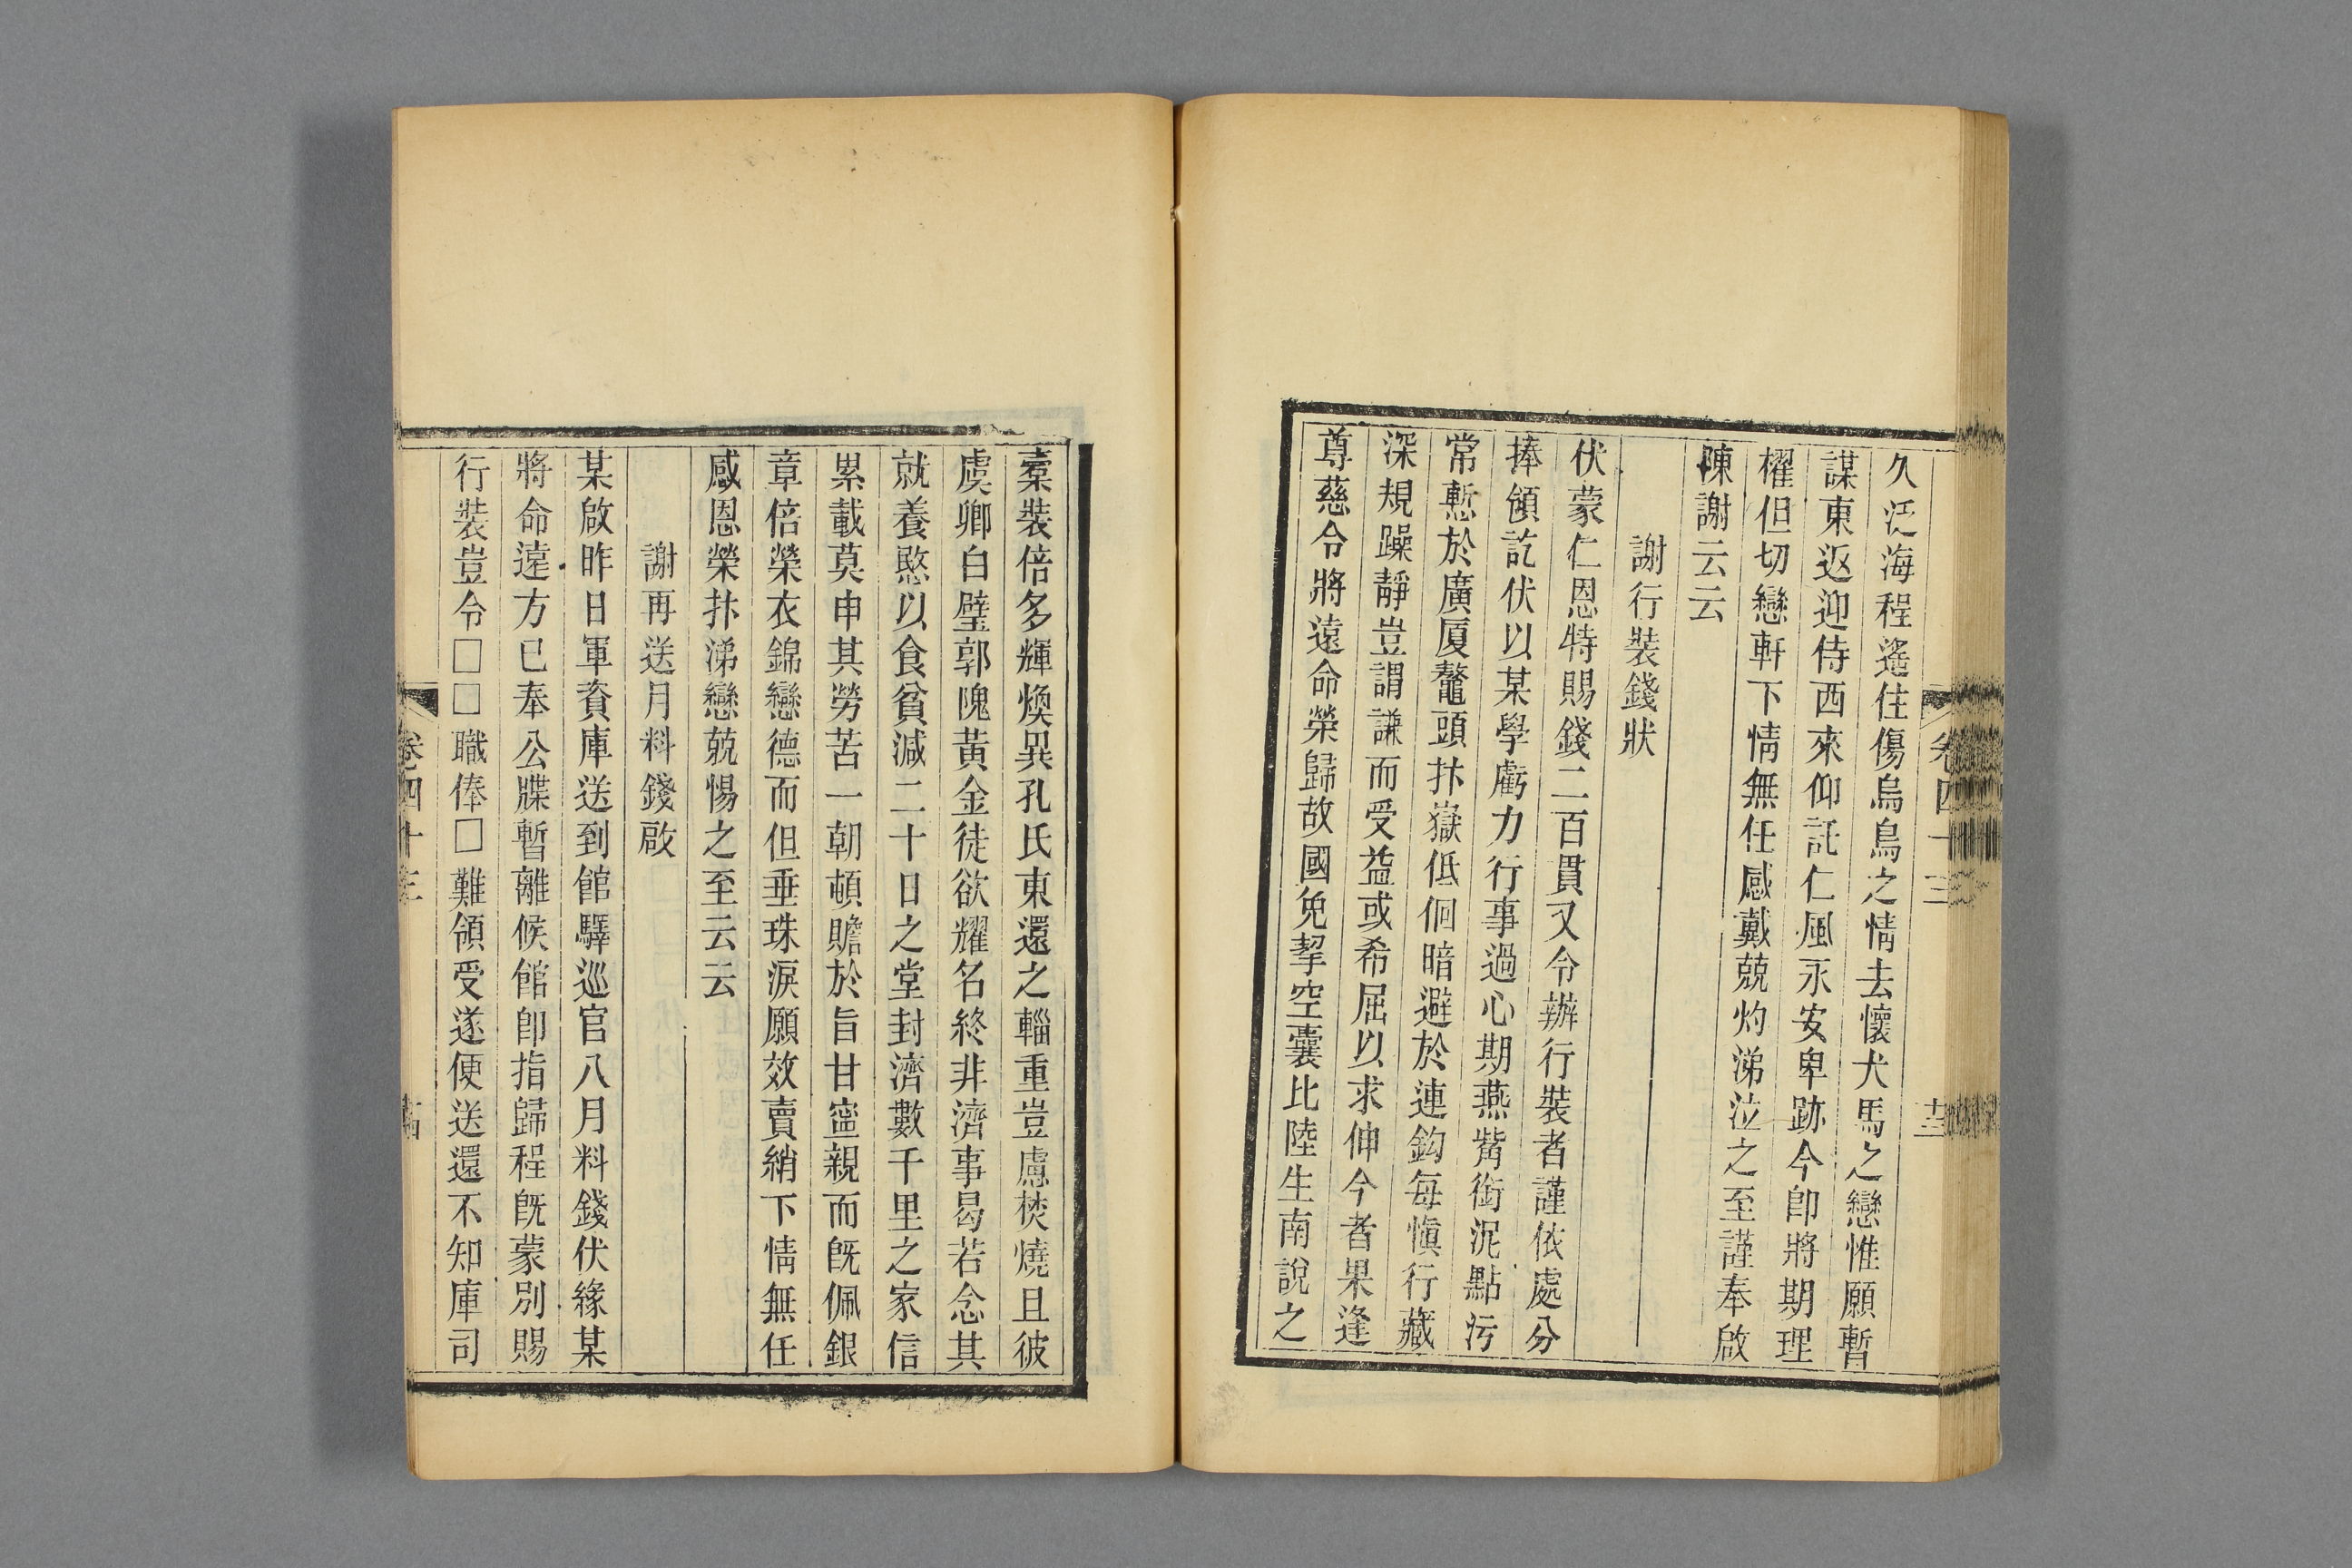 久泛海程遙住傷烏鳥之情去懷犬馬之戀惟願暫
謀東返迎侍西來仰託仁風永安卑跡今卽將期理
櫂但切戀軒下情無任感戴兢灼涕泣之至謹奉啟
陳謝云云
謝行裝錢狀
伏蒙仁恩特賜錢二百貫又令辦行裝者謹依處分
捧領訖伏以某學虧力行事過心期燕觜銜泥點污
常慙於廣厦鼇頭抃嶽低佪暗避於連鈎每愼行藏
深規躁靜豈謂謙而受益或希屈以求伸今者果逢
尊慈令將遠命榮歸故國免挈空囊比陸生南說之
橐裝倍多輝煥異孔氏東還之輜重豈慮焚燒且彼
虞卿白璧郭隗黃金徒欲耀名終非濟事曷若念其
就養愍以食貧減二十日之堂封濟數千里之家信
累載莫申其勞苦一朝頓贍於旨甘寧親而旣佩銀
章倍榮衣錦戀德而但垂珠淚願效賣綃下情無任
感恩榮抃涕戀兢惕之至云云
謝再送月料錢啟
某啟昨日軍資庫送到館驛巡官八月料錢伏緣某
將命遠方已奉公牒暫離候館卽指歸程旣蒙別賜
行裝豈令□□職俸□難領受遂便送還不知庫司
卷四十三